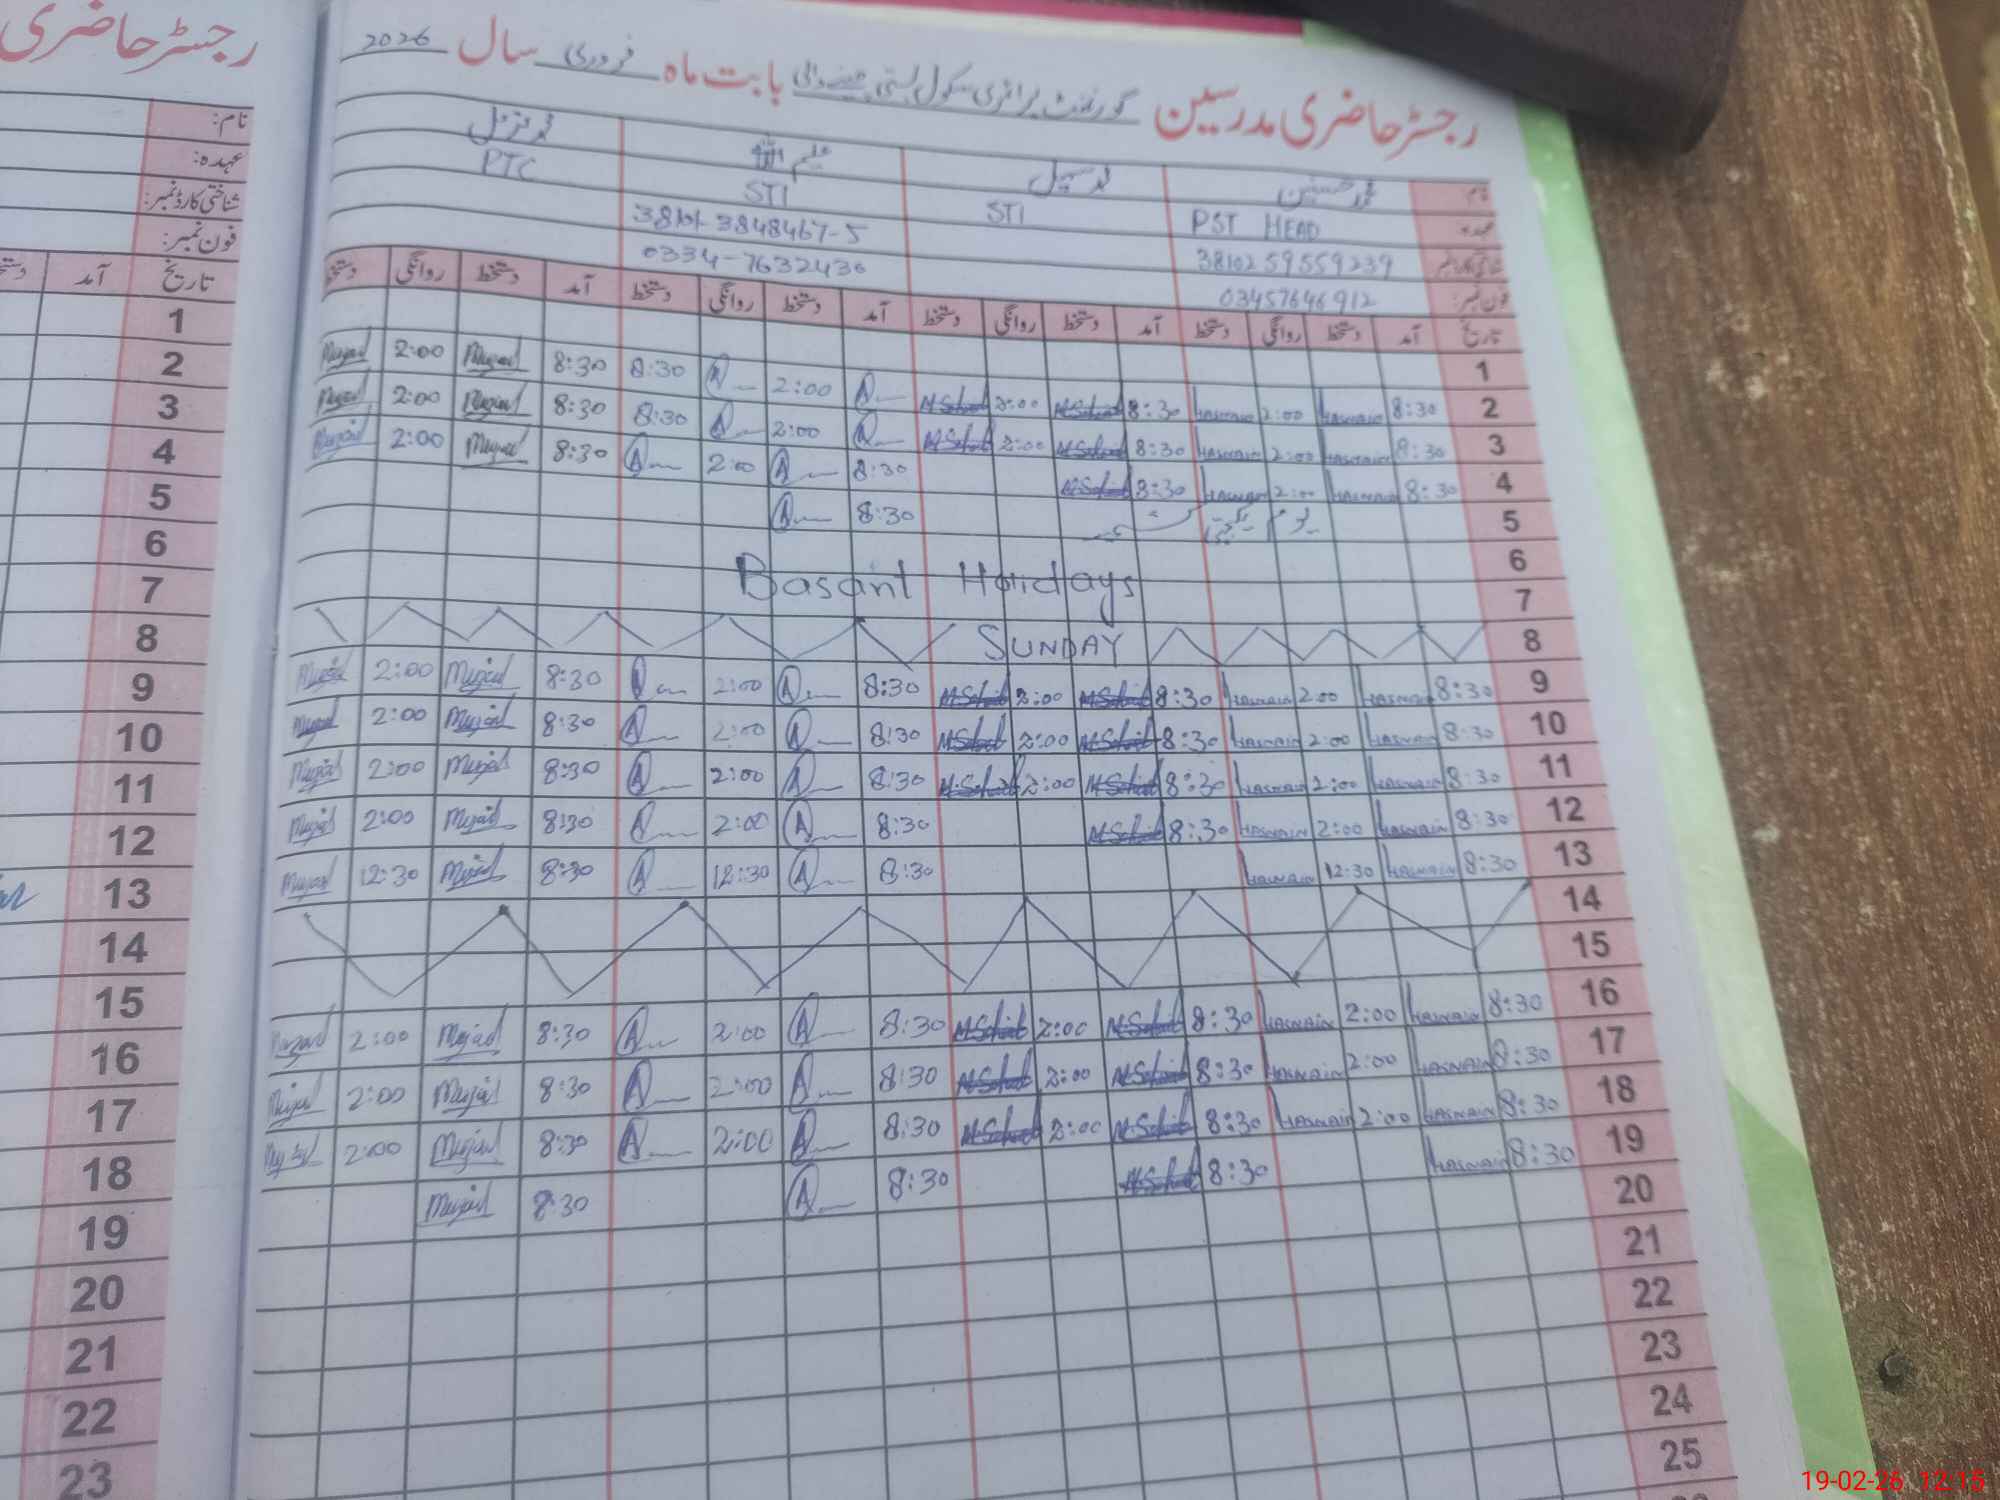 رجسٹر حاضری مدرسین گورنمنٹ پرائمری سکول بستی بابت ماہ فروری سال 2026
نام محمد حسنین
عہدہ: PST HEAD STI STI PTC
شناختی کارڈ نمبر: 38102 59559239 3848467-5
فون نمبر: 03457646912 0334-7632430
تاریخ آمد دستخط روانگی دستخط آمد دستخط روانگی دستخط آمد دستخط روانگی دستخط آمد دستخط روانگی دستخط
1
2 8:30 HASNAIN 2:00 HASNAIN 8:30 M Sohail 2:00 M Sohail 2:00 8:30 8:30 2:00
3 8:30 HASNAIN 2:00 HASNAIN 8:30 M Sohail 2:00 M Sohail 2:00 8:30 8:30 2:00
4 8:30 HASNAIN 2:00 HASNAIN 8:30 M Sohail 8:30 2:00 8:30 2:00
5 یوم یکجہتی کشمیر 8:30
6 Basant Holidays
7
8 SUNDAY
9 8:30 HASNAIN 2:00 HASNAIN 8:30 M Sohail 2:00 M Sohail 8:30 2:00 8:30 2:00
10 8:30 HASNAIN 2:00 HASNAIN 8:30 M Sohail 2:00 M Sohail 8:30 2:00 8:30 2:00
11 8:30 HASNAIN 2:00 HASNAIN 8:30 M Sohail 2:00 M Sohail 8:30 2:00 8:30 2:00
12 8:30 HASNAIN 2:00 HASNAIN 8:30 M Sohail 8:30 2:00 8:30 2:00
13 8:30 HASNAIN 12:30 HASNAIN 8:30 12:30 8:30 12:30
14
15
16 8:30 HASNAIN 2:00 HASNAIN 8:30 M Sohail 2:00 M Sohail 8:30 2:00 8:30 2:00
17 8:30 HASNAIN 2:00 HASNAIN 8:30 M Sohail 2:00 M Sohail 8:30 2:00 8:30 2:00
18 8:30 HASNAIN 2:00 HASNAIN 8:30 M Sohail 2:00 M Sohail 8:30 2:00 8:30 2:00
19 8:30 HASNAIN 8:30 M Sohail 8:30 8:30
20
21
22
23
24
25
رجسٹر حاضری
نام:
عہدہ:
شناختی کارڈ نمبر:
فون نمبر:
تاریخ آمد
1
2
3
4
5
6
7
8
9
10
11
12
13
14
15
16
17
18
19
20
21
22
23
19-02-26 12:15